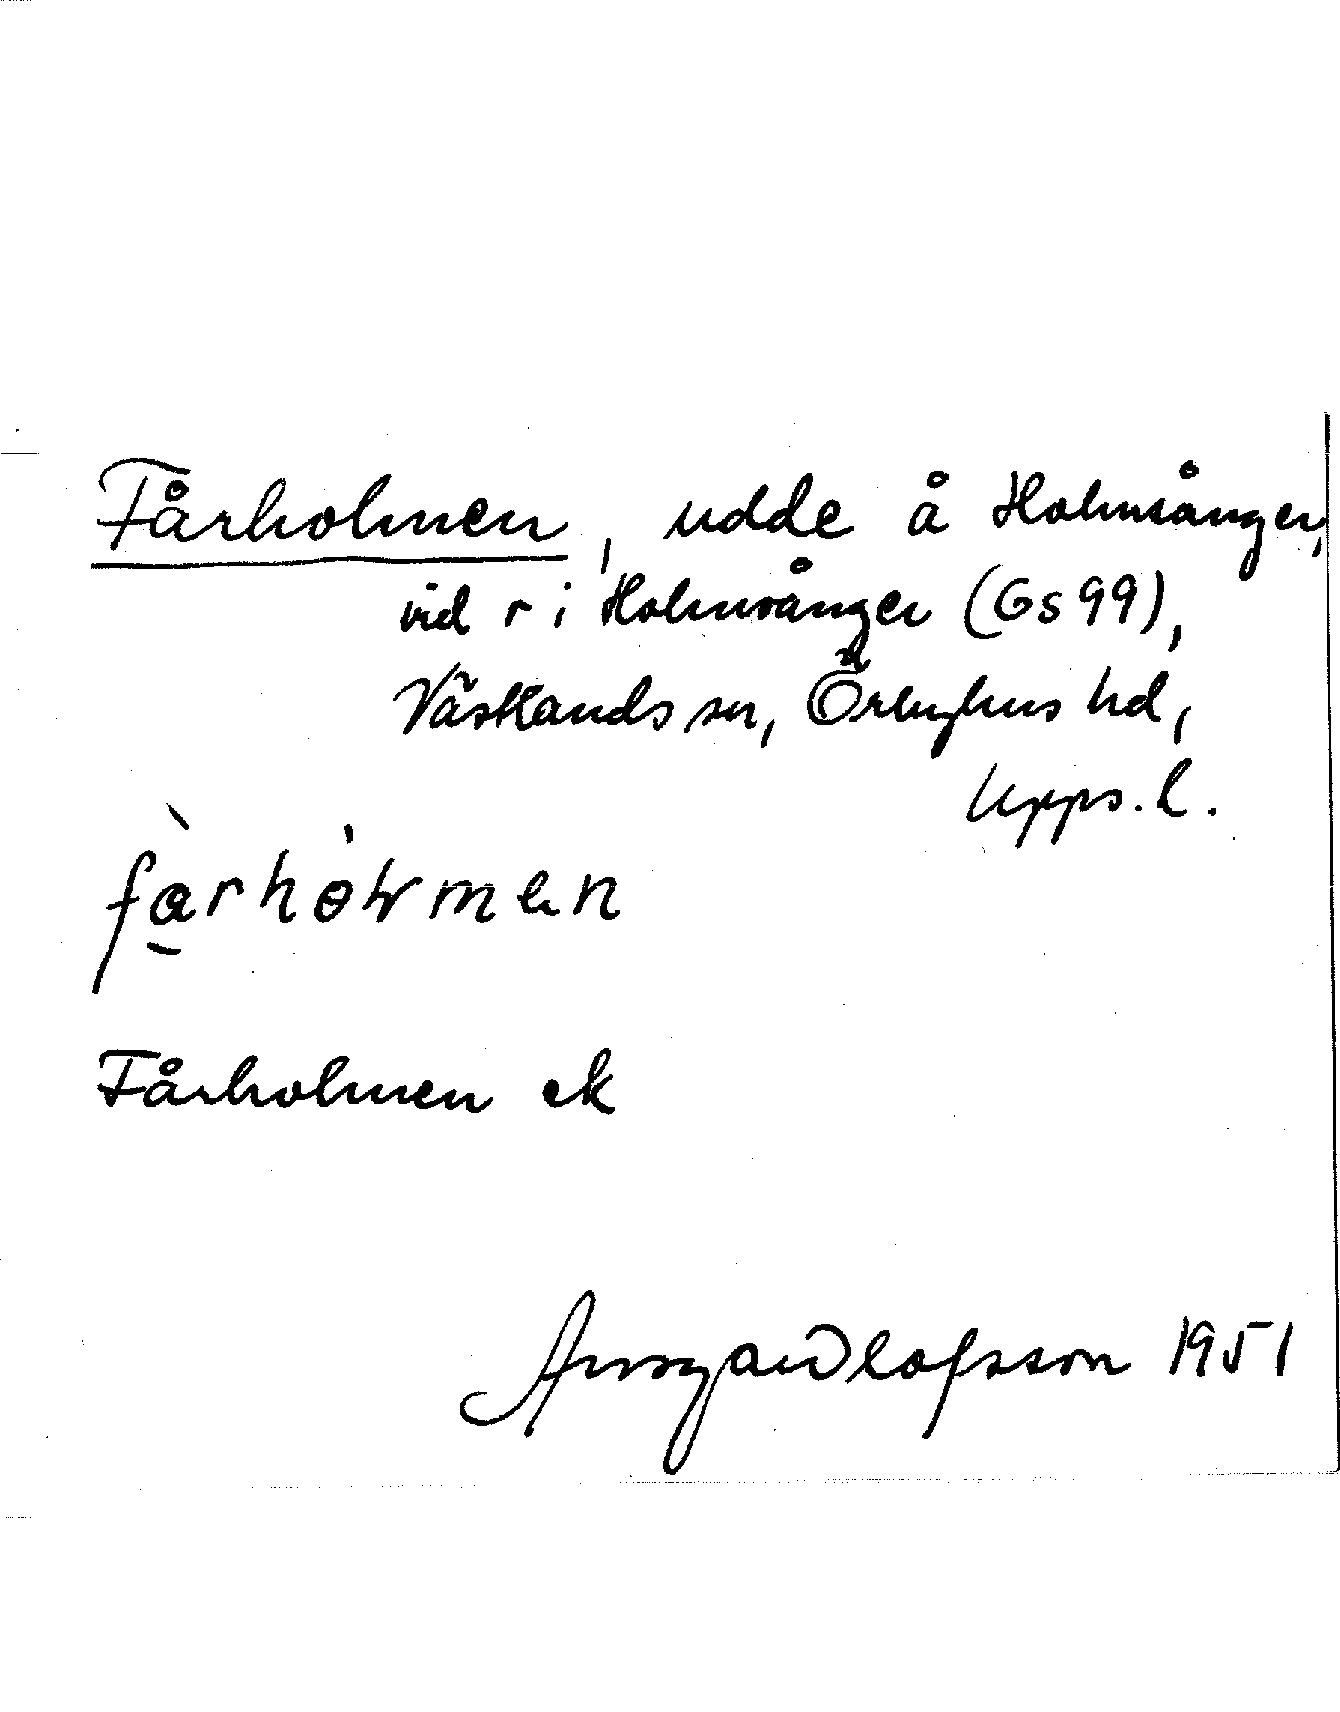 Fårholmen, udde å Holmsånger,
vid r i Holmsånger (Gs 99),
Västlands sn, Örbyhus hd,
Upps. l.
Fårholmen ek
Olofsson 1951